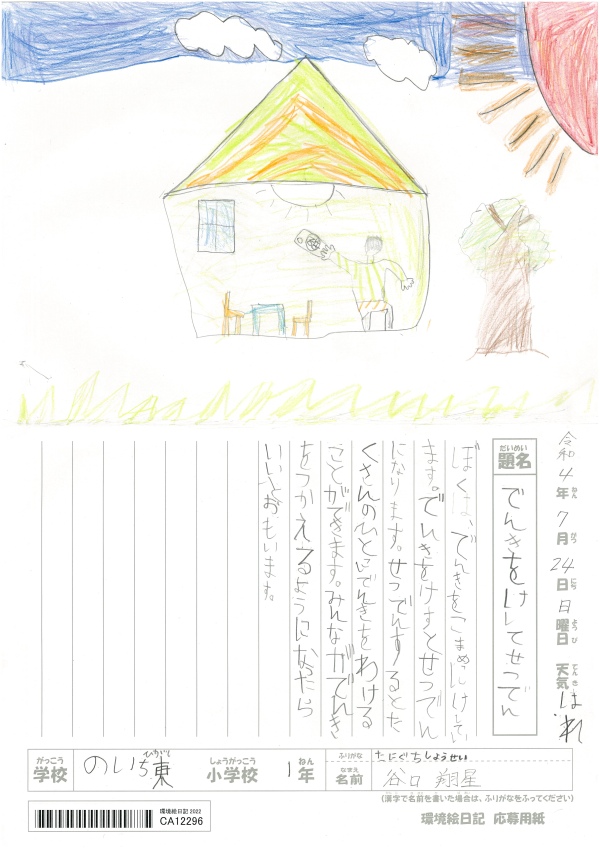 令和4年7月24日日曜日 天気 はれ
ねん がつ にち ようび てんき
だいめい
題名 でんきをけしてせつでん
ぼくは、でんきをこまめにけしてい
ます。でんきをけすとせつでん
になります。せつでんするとた
くさんのひとにでんきをわける
ことができます。みんながでんき
をつかえるようになったら
いいとおもいます。
がっこう ひがし しょうがっこう ねん
学校 のいち東 小学校 1年
ふりがな たにぐちしょうせい
なまえ
名前 谷口 翔星
(漢字で名前を書いた場合は、ふりがなをふってください)
環境絵日記 2022
CA12296
環境絵日記 応募用紙